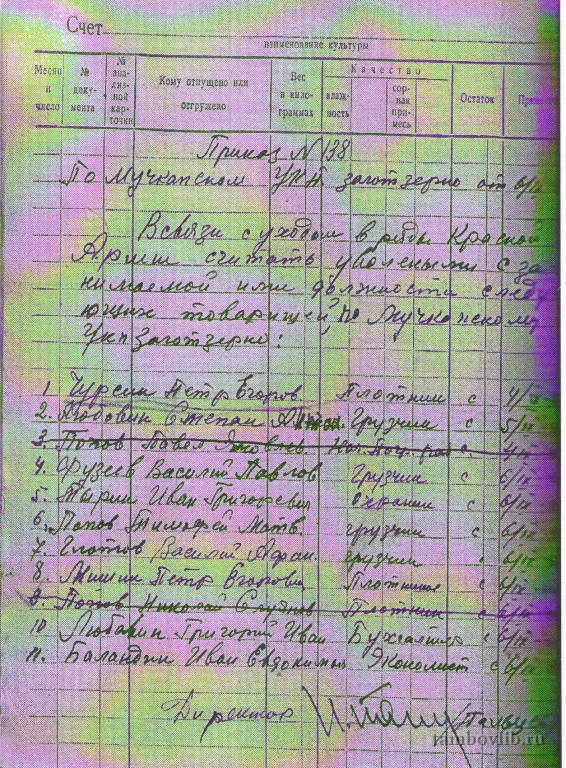 Счет
наименование культуры
Месяц и число
№ доку-мента
№ ана-лиз-ной кар-точки
Кому отпущено или отгружено
Вес в кило-граммах
Качество
влаж-ность
сор-ная при-месь
Остаток
Приказ № 138
По Мучкапском УКП заготзерно от 6/IX
Всвязи с уходом в ряды Красной
Армии считать уволеными с за
нимаемой ими должности следу
ющих товарищей, по Мучкапскому
Укп Заготзерно:
1. Чурсин Петр Егоров Плотник с 4/IX
2. Любовин Степан Грузчик с 5/IX
3. Попов Павел Яковлев. с 4/IX
4. Фузеев Василий Павлов Грузчик с 6/IX
5. Тырин Иван Григоревич охраник с 6/IX
6. Попов Тимофей Матв. грузчик с 6/IX
7. Глотов Василий Афан. грузчик с 6/IX
8. Мишин Петр Егорович Плотником с 6/IX
9. Попов Николай Плотник с 6/IX
10 Любавин Григорий Иван. Бухгалтер с 6/IX
11. Баландин Иван Евдокимыч Экономист с 6/IX
Директор
tambovlib.ru